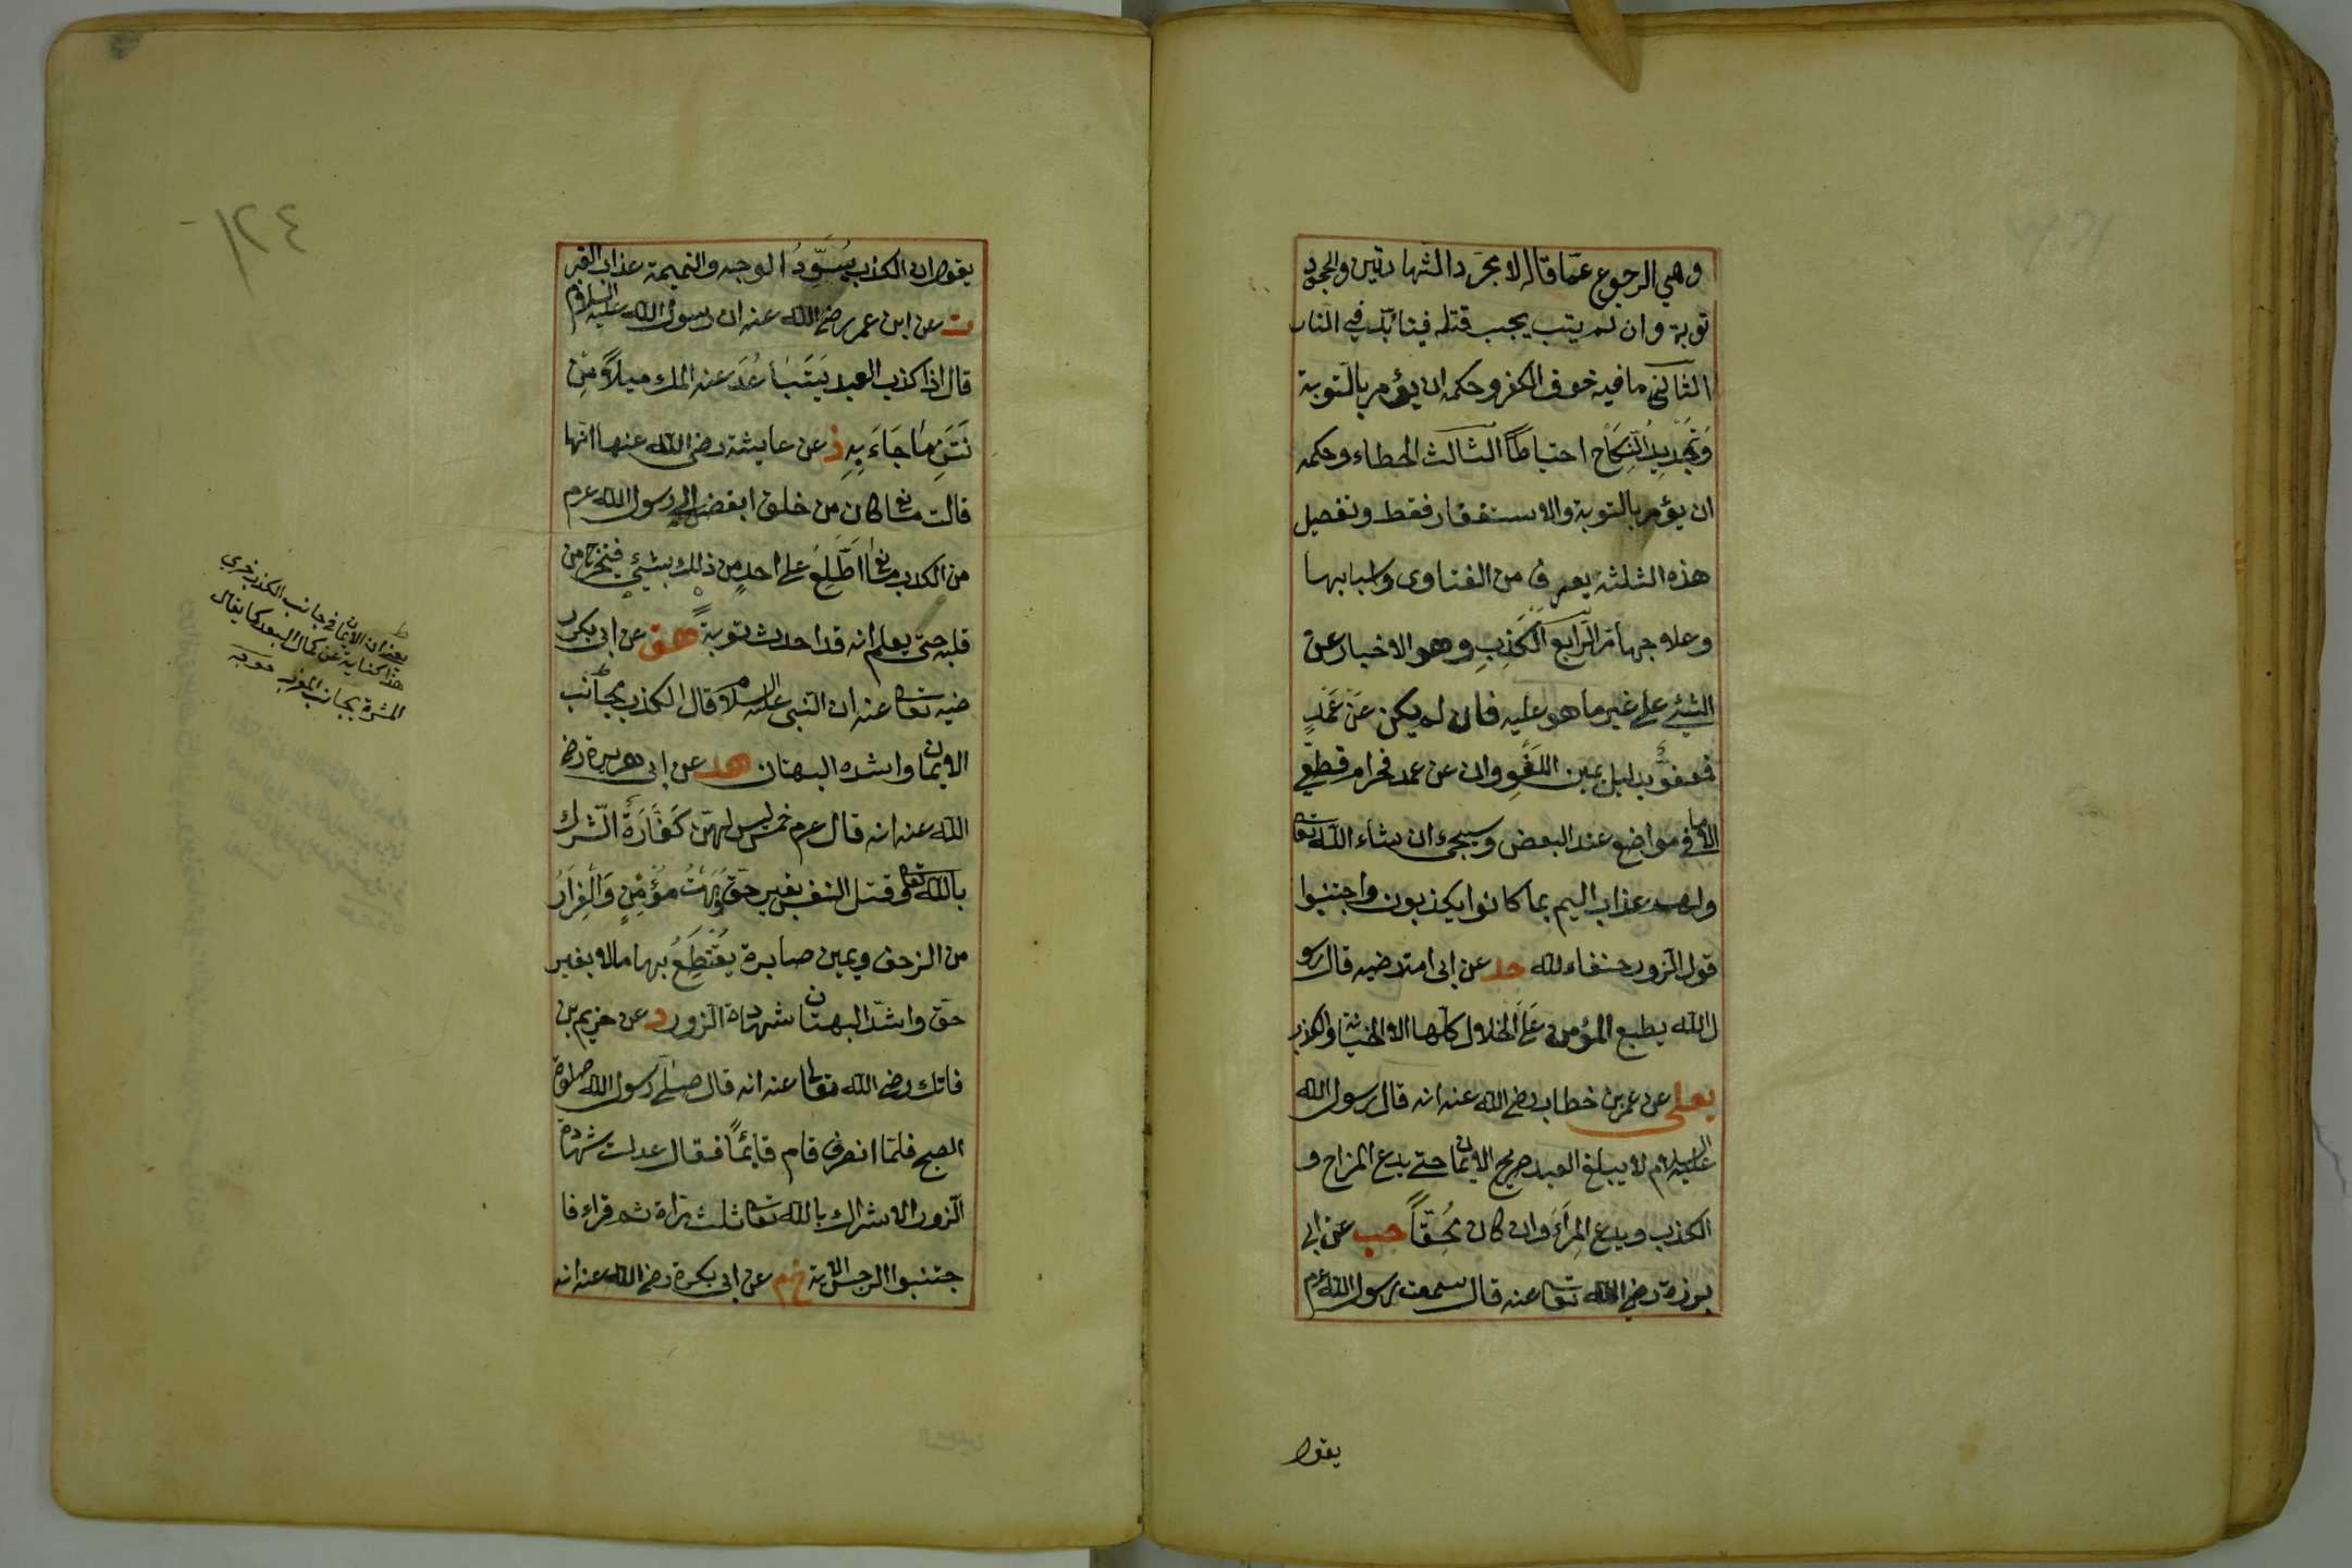 وهي الرجوع عما قاله لا مجرد الشهادتين والجحود
توبة وان لم يتب يجب قتله فيتابد في النار
الثاني ما فيه خوف الكفر وحكمه ان يؤمر بالتوبة
وَتَجْدِيدِ النِّكَاحِ احتياطاً الثالث الخطاء وحكمه
ان يؤمر بالتوبة والاستغفار فقط وتفصيل
هذه الثلثة يعرف من الفتاوى واسبابها
وعلاجها مر الرابع الكذب وهو الاخبار عن
الشيئ على غير ما هو عليه فان لم يكن عَنْ عَمْدٍ
فعفوٌّ بدليل يمين اللَّغْوِ وان عن عمد فحرام قطعي
الا في مواضع عند البعض وسيجئ ان شاء الله تعا
ولهم عذاب اليم بما كانوا يكذبون واجتنبوا
قول الزور حنفاء لله حد عن ابى امامة رضيه قال رسو
ل الله يطبع المؤمن عَلَى الخلال كلها الا الخيانة والكذب
يعلى عن عمر بن خطاب رضي الله عنه انه قال رسول الله
عليه السلام لا يبلغ العبد صريح الايمان حتى يدع المزاح و
الكذب ويدع المِرَاءَ وان كان مُحِقّاً حب عن ابى
برزة رضي الله تعا عنه قال سمعت رسول الله عرم
يقول
١٢٤
يقول ان الكذب يُسَوِّدُ الوجه والنميمة عذاب القبر
ت عن ابن عمر رضي الله عنه ان رسول الله عليه السلام
قال اذا كذب العبد يَتَبَاعُدَ عنه الملك ميلاً مِنْ
نَتَنِ مَا جَاءَ بِهِ ز عن عايشة رضي الله عنها انها
قالت ما كان من خلق ابغض الى رسول الله عرم
من الكذب ما اطَّلَعَ على احدٍ من ذلك بشيئٍ فيخرج من
قلبه حتى يعلم انه قد احدث توبة هق عن ابى بكر ر
ضيه تعا عنه ان النبى عليه السلام قال الكذب مجانب
الايمان واشده البهتان حد عن ابى هريرة رضي
الله عنه انه قال عرم خمس ليس لهن كَفَّارَةٌ الشرك
بالله تعا وقتل النفس بغير حق وَبَهْتُ مُؤْمِنٍ وَالْفِرَارُ
من الزحف ويمين صابرة يَقْتَطِعُ بها مالا بغير
حق واشد البهتان شهادة الزور د عن خريم بن
فاتك رضي الله تعالى عنه انه قال صلى رسول الله صلوة
الصبح فلما انصرف قام قائماً فقال عدلت شهادة
الزور الاشراك بالله تعا ثلث مرات ثم قراء فا
جتنبوا الرجس الاية خم عن ابى بكرة رضي الله عنه انه
ط
يعني ان الايمان في جانب الكذب في
هذا كناية عن كمال البعد كما يقال